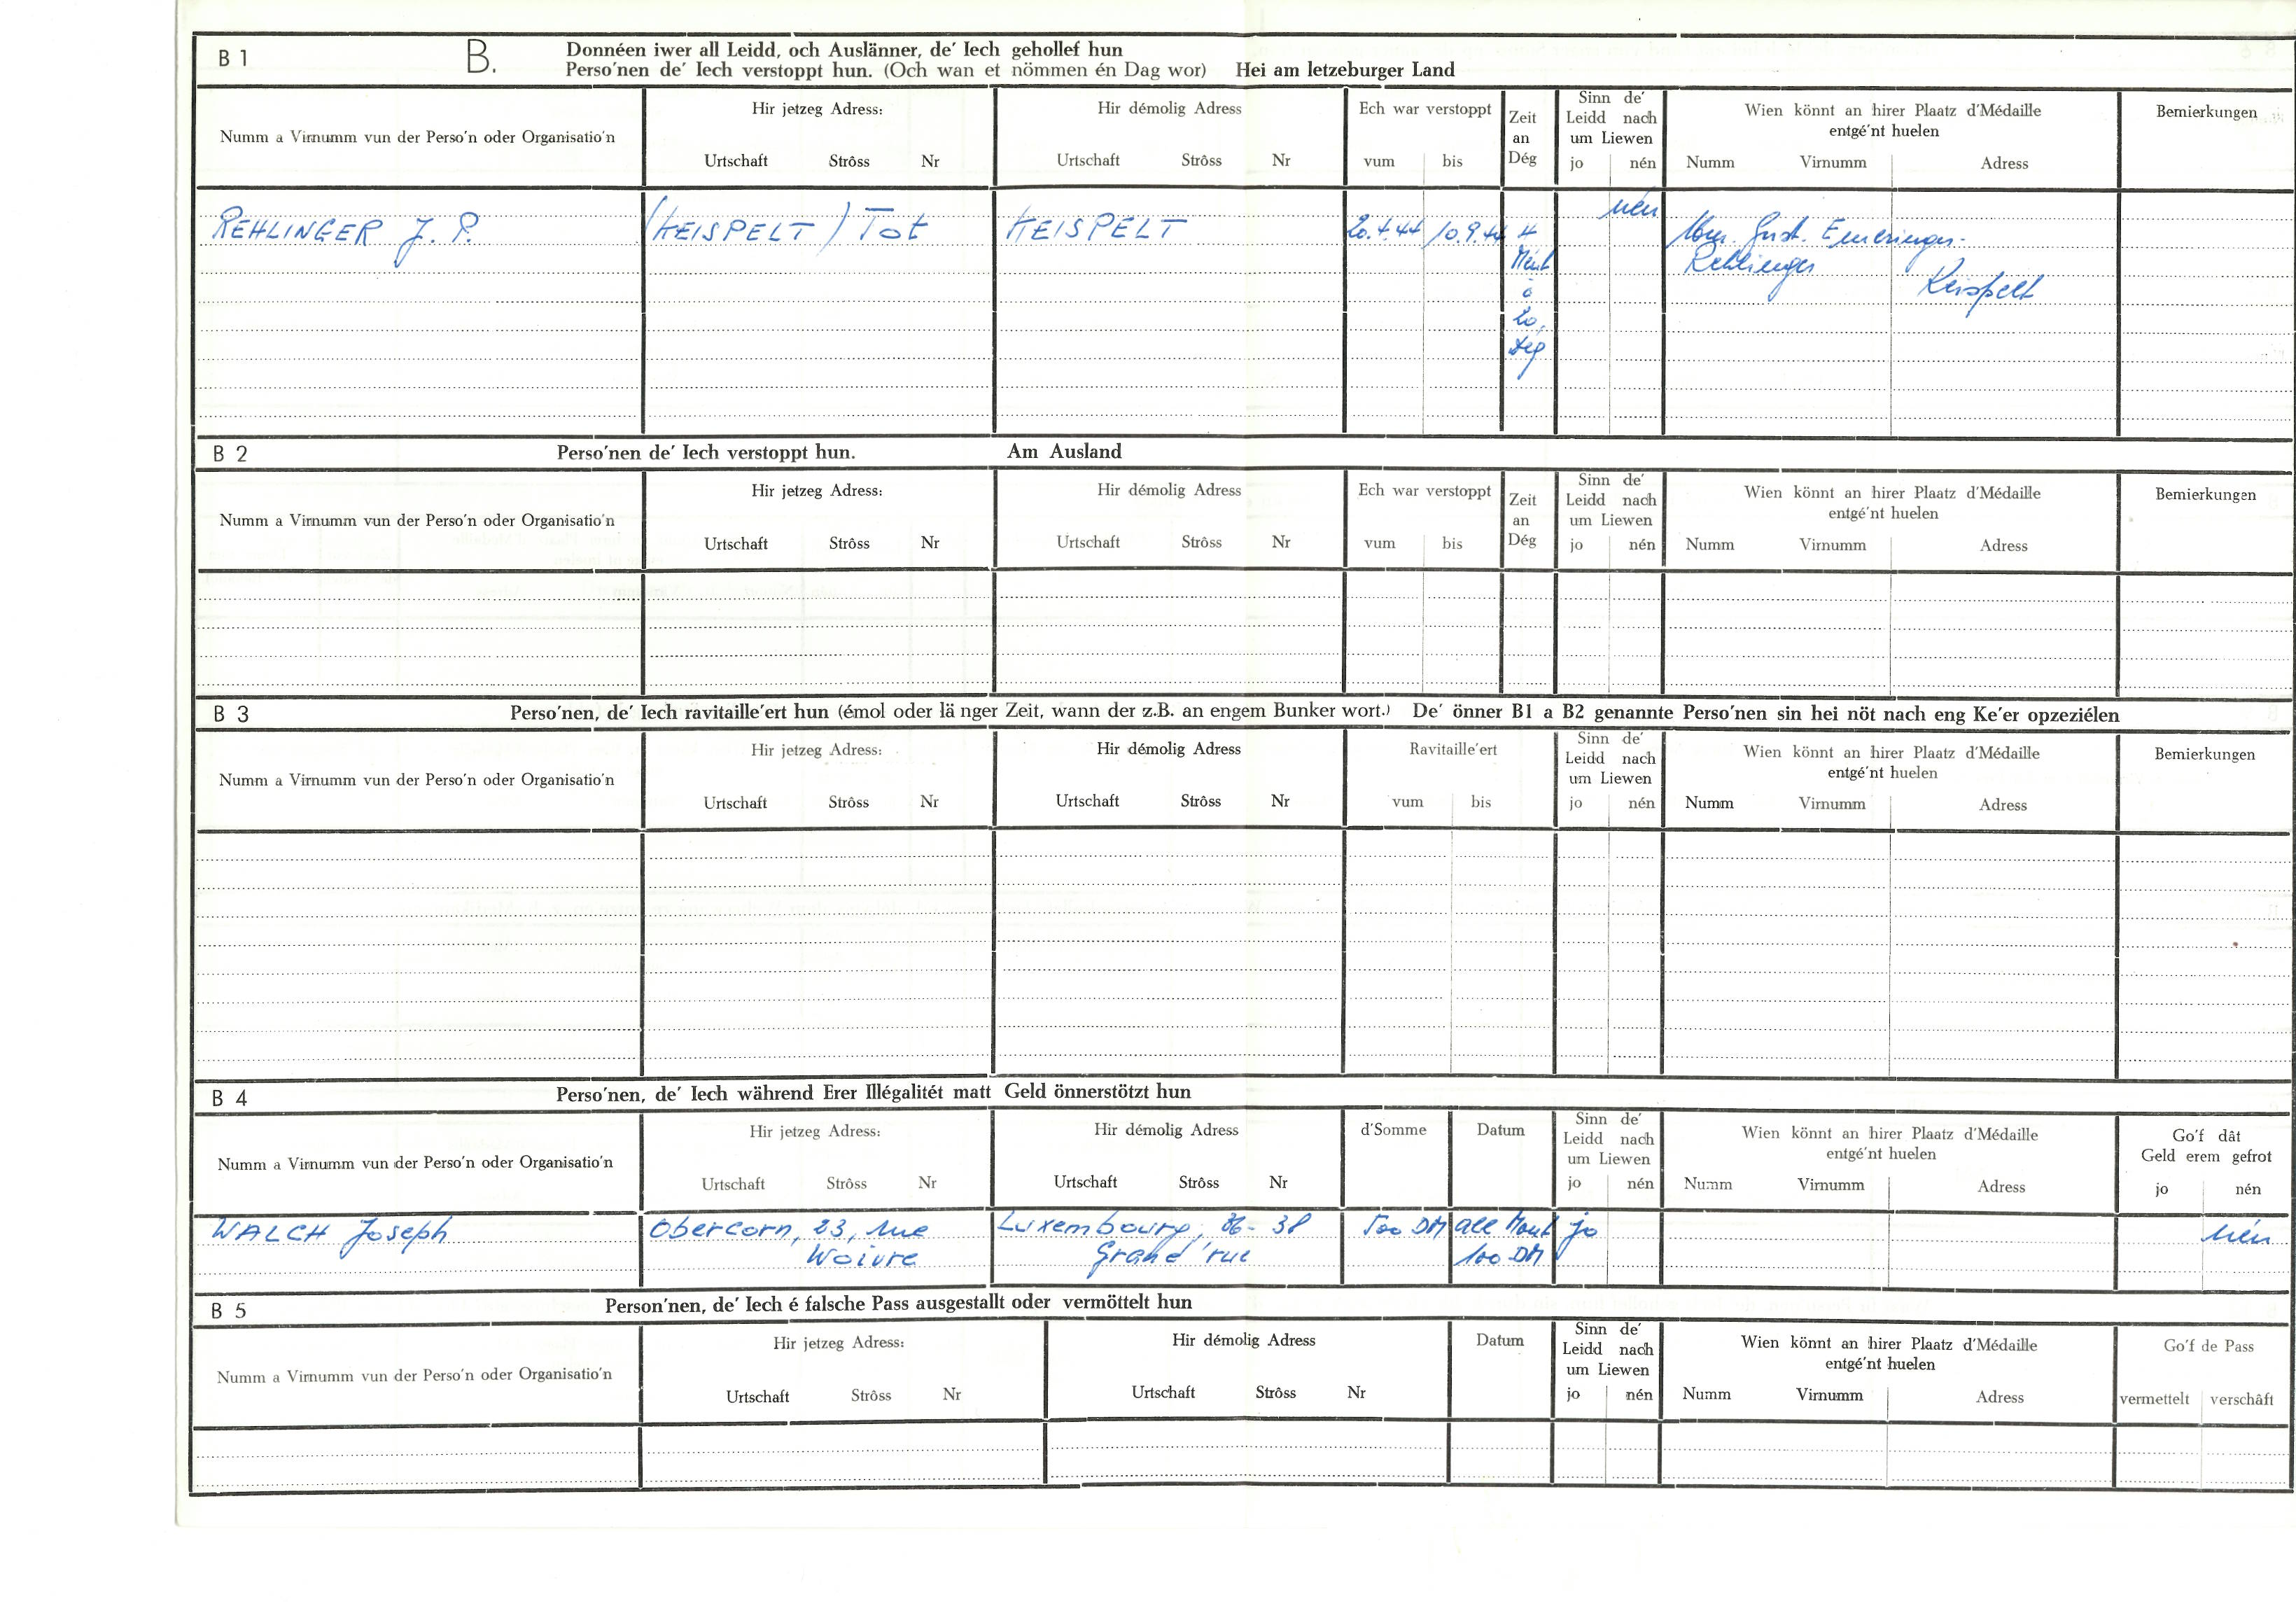 B 1 B. Donnéen iwer all Leidd, och Auslänner, de' Iech gehollef hun
Perso'nen de' Iech verstoppt hun. (Och wan et nömmen én Dag wor) Hei am letzeburger Land
Numm a Virnumm vun der Perso'n oder Organisatio'n
Hir jetzeg Adress:
Urtschaft Strôss Nr
Hir démolig Adress
Urtschaft Strôss Nr
Ech war verstoppt
vum bis
Zeit
an
Dég
Sinn de'
Leidd nach
um Liewen
jo nén
Wien könnt an hirer Plaatz d'Médaille
entgé'nt huelen
Numm Virnumm Adress
Bemierkungen
REHLINGER J. P. (KEISPELT) Tot KEISPELT 20.4.44 10.9.44 4 nén
Emeringer-
Rehlinger
Keispelt
20
Dég
B 2 Perso'nen de' Iech verstoppt hun. Am Ausland
Numm a Virnumm vun der Perso'n oder Organisatio'n
Hir jetzeg Adress:
Urtschaft Strôss Nr
Hir démolig Adress
Urtschaft Strôss Nr
Ech war verstoppt
vum bis
Zeit
an
Dég
Sinn de'
Leidd nach
um Liewen
jo nén
Wien könnt an hirer Plaatz d'Médaille
entgé'nt huelen
Numm Virnumm Adress
Bemierkungen
B 3 Perso'nen, de' Iech ravitaille'ert hun (émol oder länger Zeit, wann der z.B. an engem Bunker wort.) De' önner B1 a B2 genannte Perso'nen sin hei nöt nach eng Ke'er opzeziélen
Numm a Virnumm vun der Perso'n oder Organisatio'n
Hir jetzeg Adress:
Urtschaft Strôss Nr
Hir démolig Adress
Urtschaft Strôss Nr
Ravitaille'ert
vum bis
Sinn de'
Leidd nach
um Liewen
jo nén
Wien könnt an hirer Plaatz d'Médaille
entgé'nt huelen
Numm Virnumm Adress
Bemierkungen
B 4 Perso'nen, de' Iech während Erer Illégalitét matt Geld önnerstötzt hun
Numm a Virnumm vun der Perso'n oder Organisatio'n
Hir jetzeg Adress:
Urtschaft Strôss Nr
Hir démolig Adress
Urtschaft Strôss Nr
d'Somme
Datum
Sinn de'
Leidd nach
um Liewen
jo nén
Wien könnt an hirer Plaatz d'Médaille
entgé'nt huelen
Numm Virnumm Adress
Go'f dât
Geld erem gefrot
jo nén
WALCH Joseph Obercorn, 23, rue Luxembourg, 36-38 500 DM all Mont jo nén
Woivre Grand'rue 100 DM
B 5 Person'nen, de' Iech é falsche Pass ausgestallt oder vermöttelt hun
Numm a Virnumm vun der Perso'n oder Organisatio'n
Hir jetzeg Adress:
Urtschaft Strôss Nr
Hir démolig Adress
Urtschaft Strôss Nr
Datum
Sinn de'
Leidd nach
um Liewen
jo nén
Wien könnt an hirer Plaatz d'Médaille
entgé'nt huelen
Numm Virnumm Adress
Go'f de Pass
vermettelt verschâft